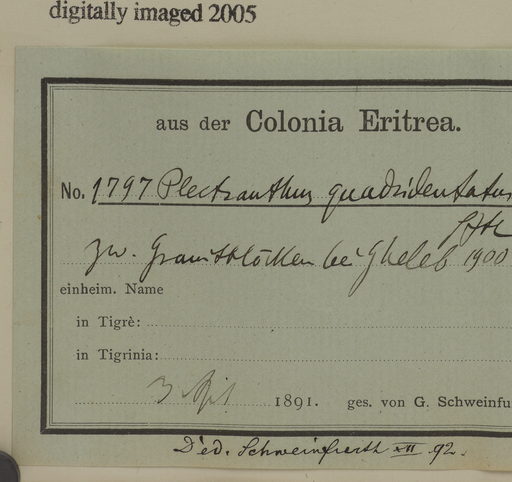 digitally imaged 2005
aus der Colonia Eritrea.
No. 1797 Plectranthus quadridentatus
Sfth
zw. Granitblöcken bei Gheleb 1900
einheim. Name
in Tigrè:
in Tigrinia:
3 April 1891. ges. von G. Schweinfu
Ded. Schweinfurth XII 92.